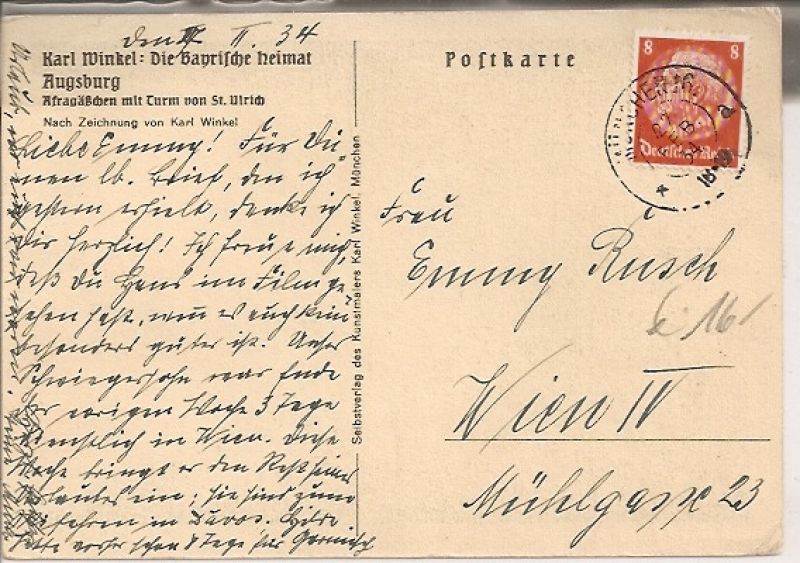 den II. 34
Karl Winkel: Die bayrische Heimat
Augsburg
Afragäßchen mit Turm von St. Ulrich
Nach Zeichnung von Karl Winkel
Liebe Emmy! Für Dei
nen lb. Brief, den ich
gestern erhielt, danke ich
Dir herzlich! Ich freue mich,
daß Du Hans im Film ge
sehen hast, wenn es auch kein
besonders guter ist. Unser
Schwiegersohn war Ende
der vorigen Woche 3 Tage
dienstlich in Wien. Diese
Woche bringt er den Rest seines
Urlaubes ein; sie sind zum
Skifahren in Davos. Hilde
hatte vorher schon 8 Tage für Garmisch
Selbstverlag des Kunstmalers Karl Winkel, München
Postkarte
8 8
Deutsches Reich
MÜNCHEN
B.
34
18-19
a
Frau
Emmy Rusch
Wien IV
Mühlgasse 23